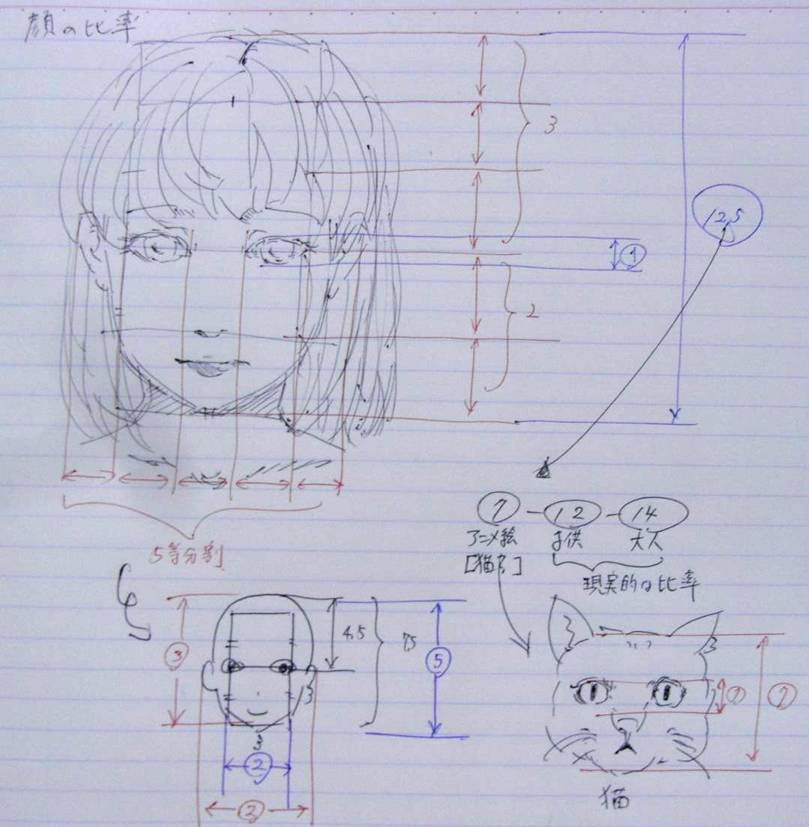 顔の比率
3
12,5
①
2
⑦-⑫-⑭
アニメ絵 子供 大人
[猫 ]
現実的の比率
5等分割
4.5
7.5
③
⑤
②
②
②
⑦
猫